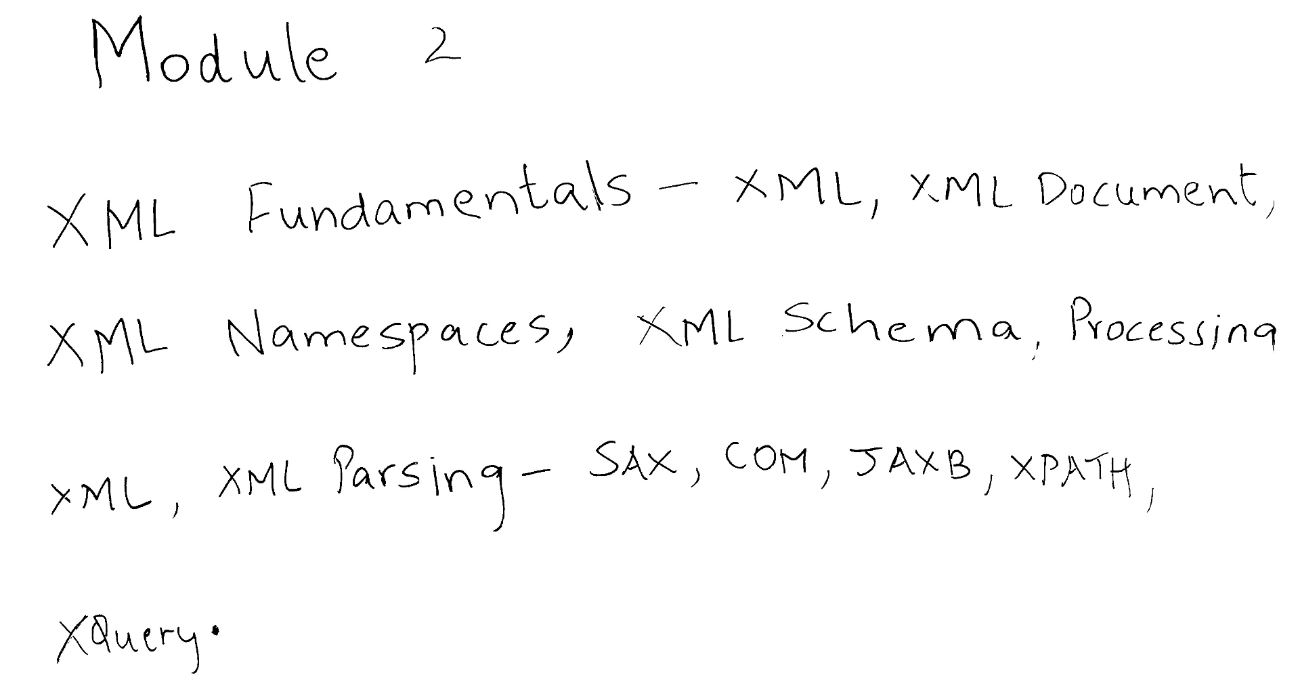 Module 2
XML Fundamentals - XML, XML Document,
XML Namespaces, XML Schema, Processing
XML, XML Parsing - SAX, COM, JAXB, XPATH,
XQuery.